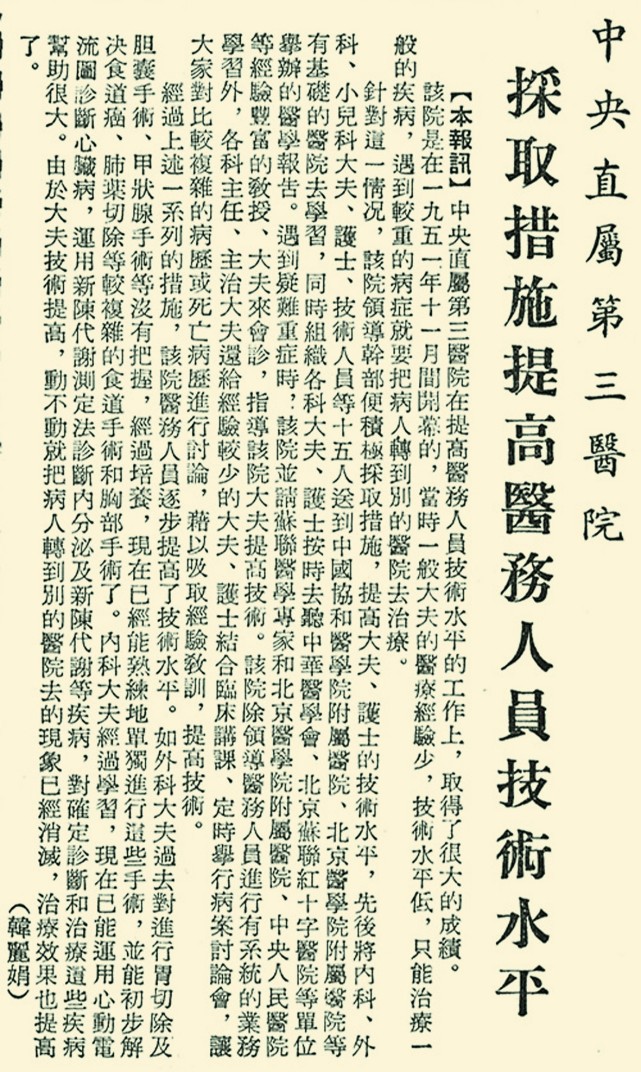 中央直屬第三醫院
採取措施提高醫務人員技術水平
【本報訊】中央直屬第三醫院在提高醫務人員技術水平的工作上，取得了很大的成績。
該院是在一九五一年十一月間開幕的，當時一般大夫的醫療經驗少，技術水平低，只能治療一
般的疾病，遇到較重的病症就要把病人轉到別的醫院去治療。
針對這一情況，該院領導幹部便積極採取措施，提高大夫、護士的技術水平，先後將內科、外
科、小兒科大夫、護士、技術人員等十五人送到中國協和醫學院附屬醫院、北京醫學院附屬醫院等
有基礎的醫院去學習，同時組織各科大夫、護士按時去聽中華醫學會、北京蘇聯紅十字醫院等單位
舉辦的醫學報告。遇到疑難重症時，該院並請蘇聯醫學專家和北京醫學院附屬醫院、中央人民醫院
等經驗豐富的敎授、大夫來會診，指導該院大夫提高技術。該院除領導醫務人員進行有系統的業務
學習外，各科主任、主治大夫還給經驗較少的大夫、護士結合臨床講課、定時舉行病案討論會，讓
大家對比較複雜的病歷或死亡病歷進行討論，藉以吸取經驗敎訓，提高技術。
經過上述一系列的措施，該院醫務人員逐步提高了技術水平。如外科大夫過去對進行胃切除及
胆囊手術、甲狀腺手術等沒有把握，經過培養，現在已經能熟練地單獨進行這些手術，並能初步解
決食道癌、肺葉切除等較複雜的食道手術和胸部手術了。內科大夫經過學習，現在已能運用心動電
流圖診斷心臟病，運用新陳代謝測定法診斷內分泌及新陳代謝等疾病，對確定診斷和治療這些疾病
幫助很大。由於大夫技術提高，動不動就把病人轉到別的醫院去的現象已經消滅，治療效果也提高
了。
（韓麗娟）